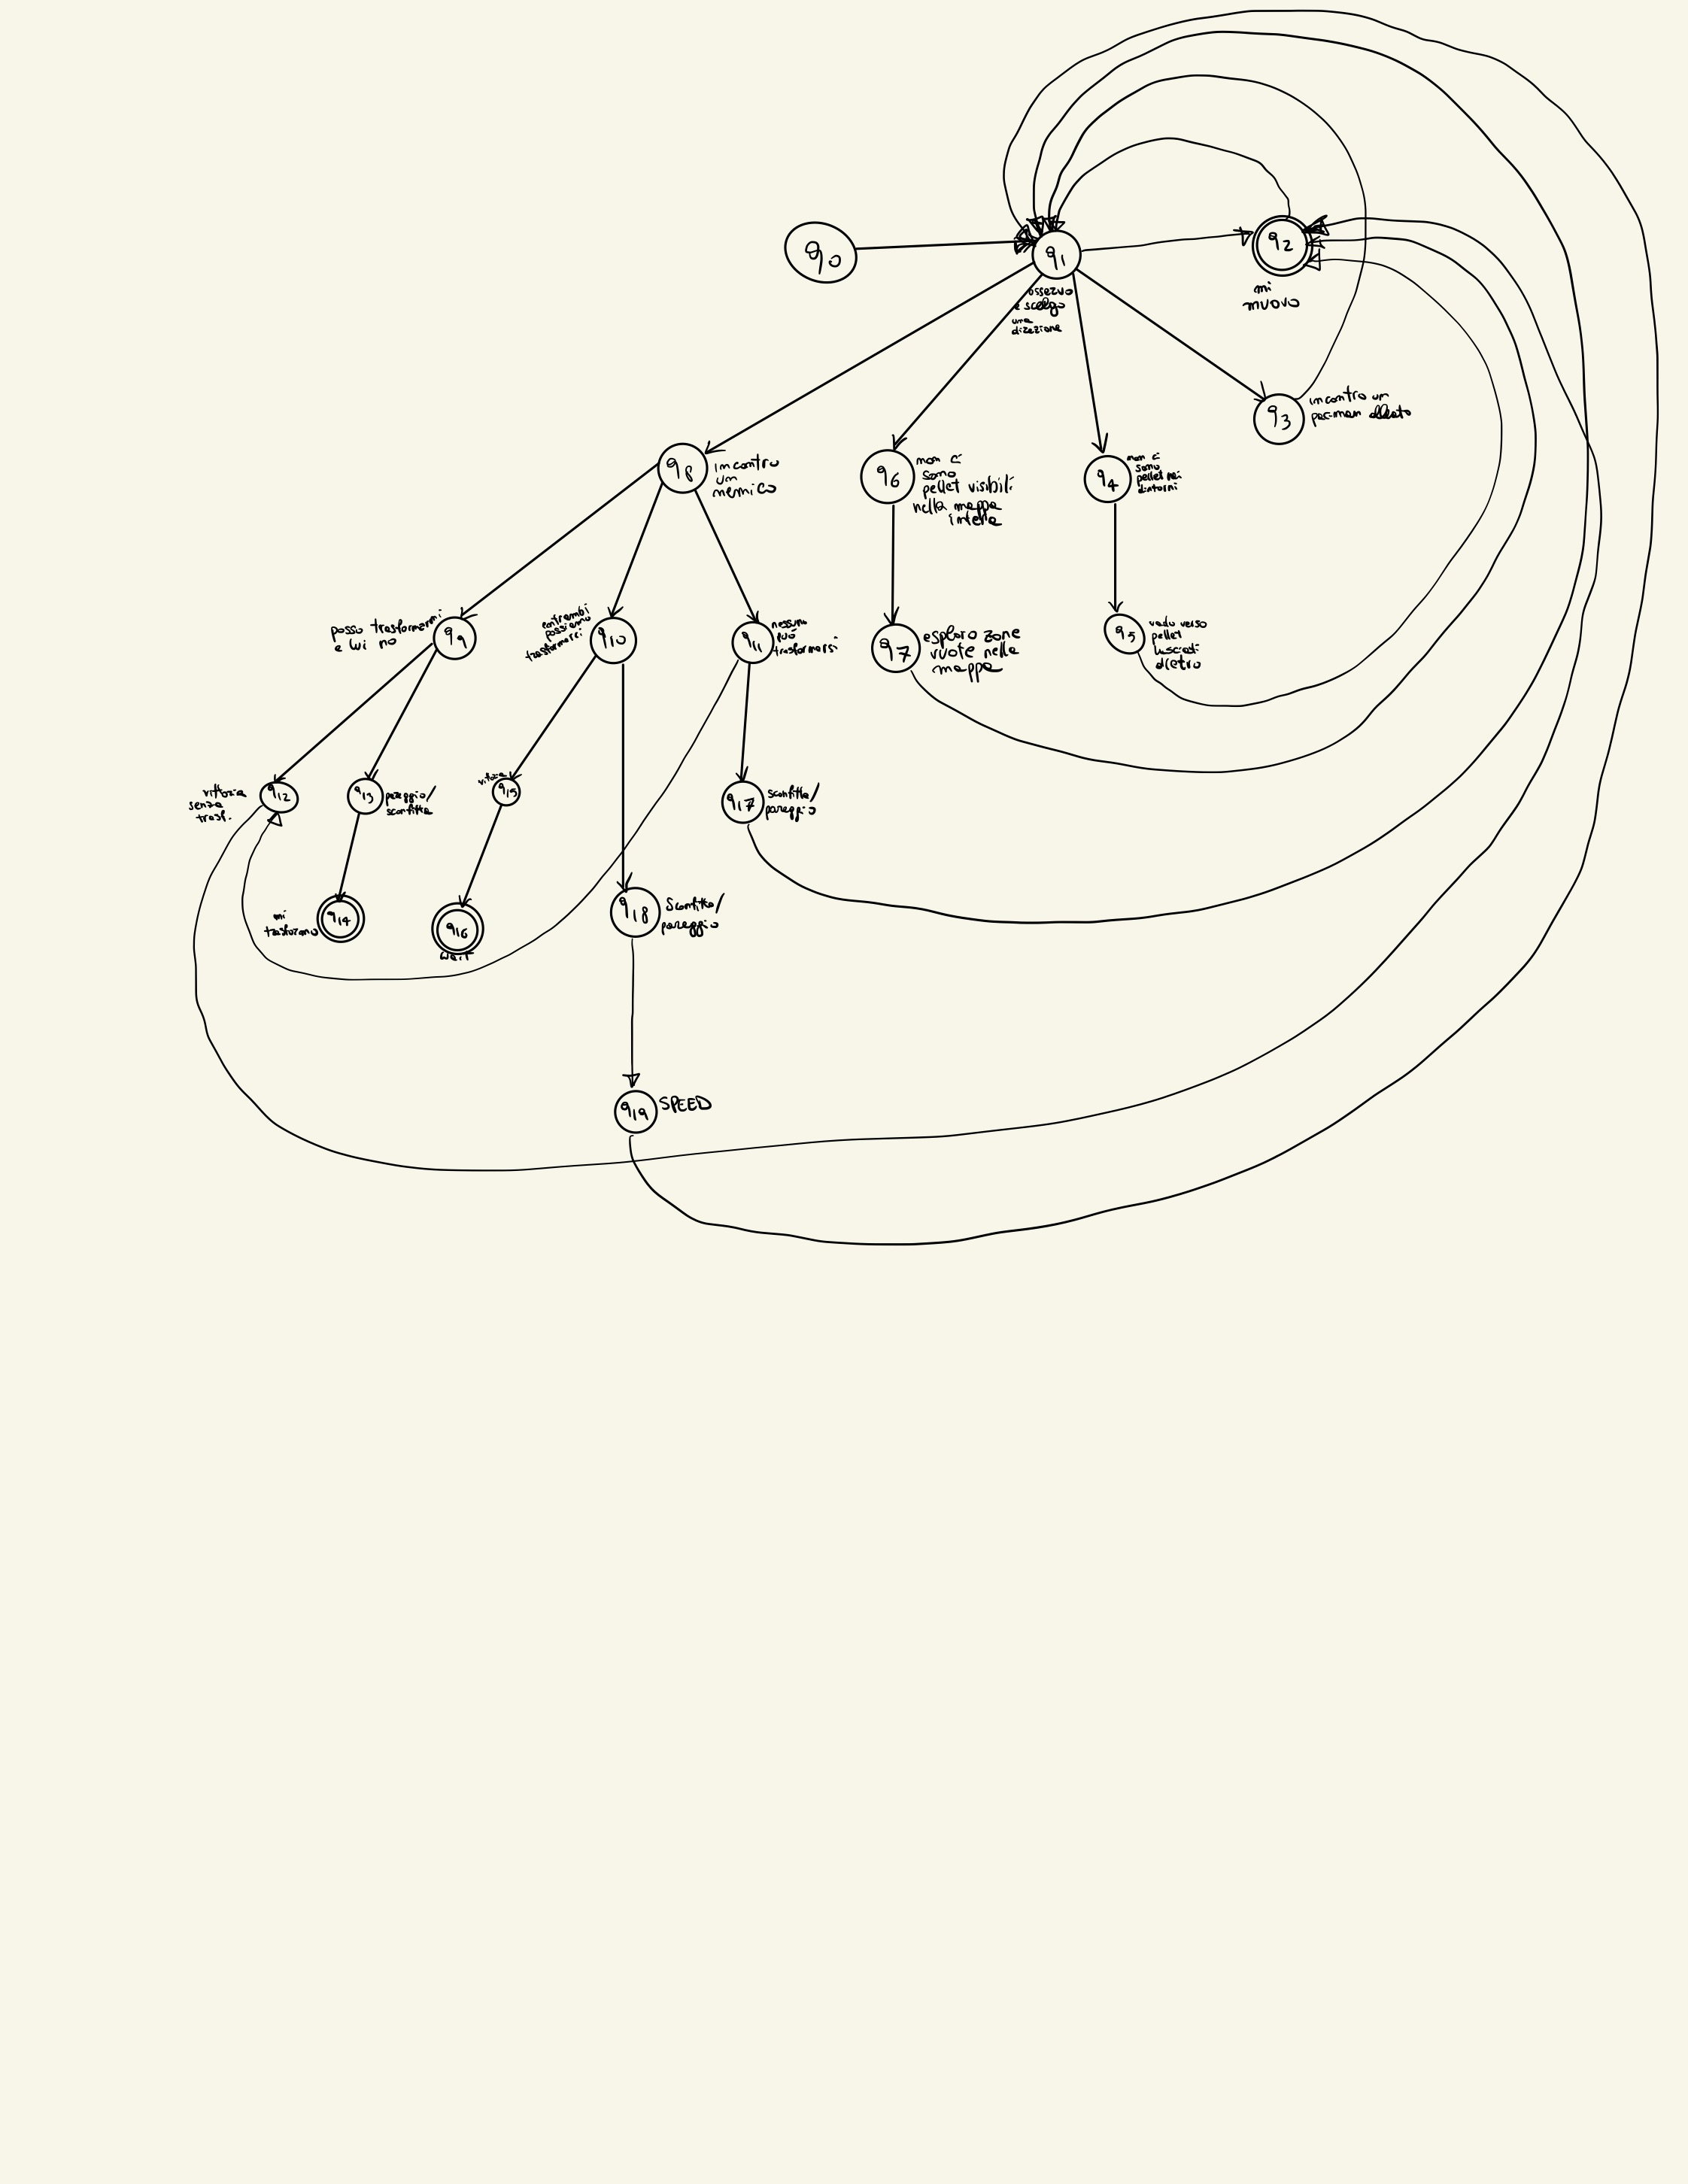 q0
q1
osservo
e scelgo
una
direzione
q2
mi
muovo
q3
incontro un
pac-man alleato
q8
incontro
un
nemico
q6
non ci
sono
pellet visibili
nella mappa
intera
q4
non ci
sono
pellet nei
dintorni
posso trasformarmi
e lui no
q9
entrambi
possiamo
trasformarci
q10
q11
nessuno
può
trasformarsi
q7
esploro zone
vuote nella
mappa
q5
vado verso
pellet
lasciati
dietro
vittoria
senza
trasf.
q12
q13
pareggio/
sconfitta
vittoria
q15
q17
sconfitta/
pareggio
mi
trasformo
q14
q16
wait
q18
Sconfitta/
pareggio
q19
SPEED